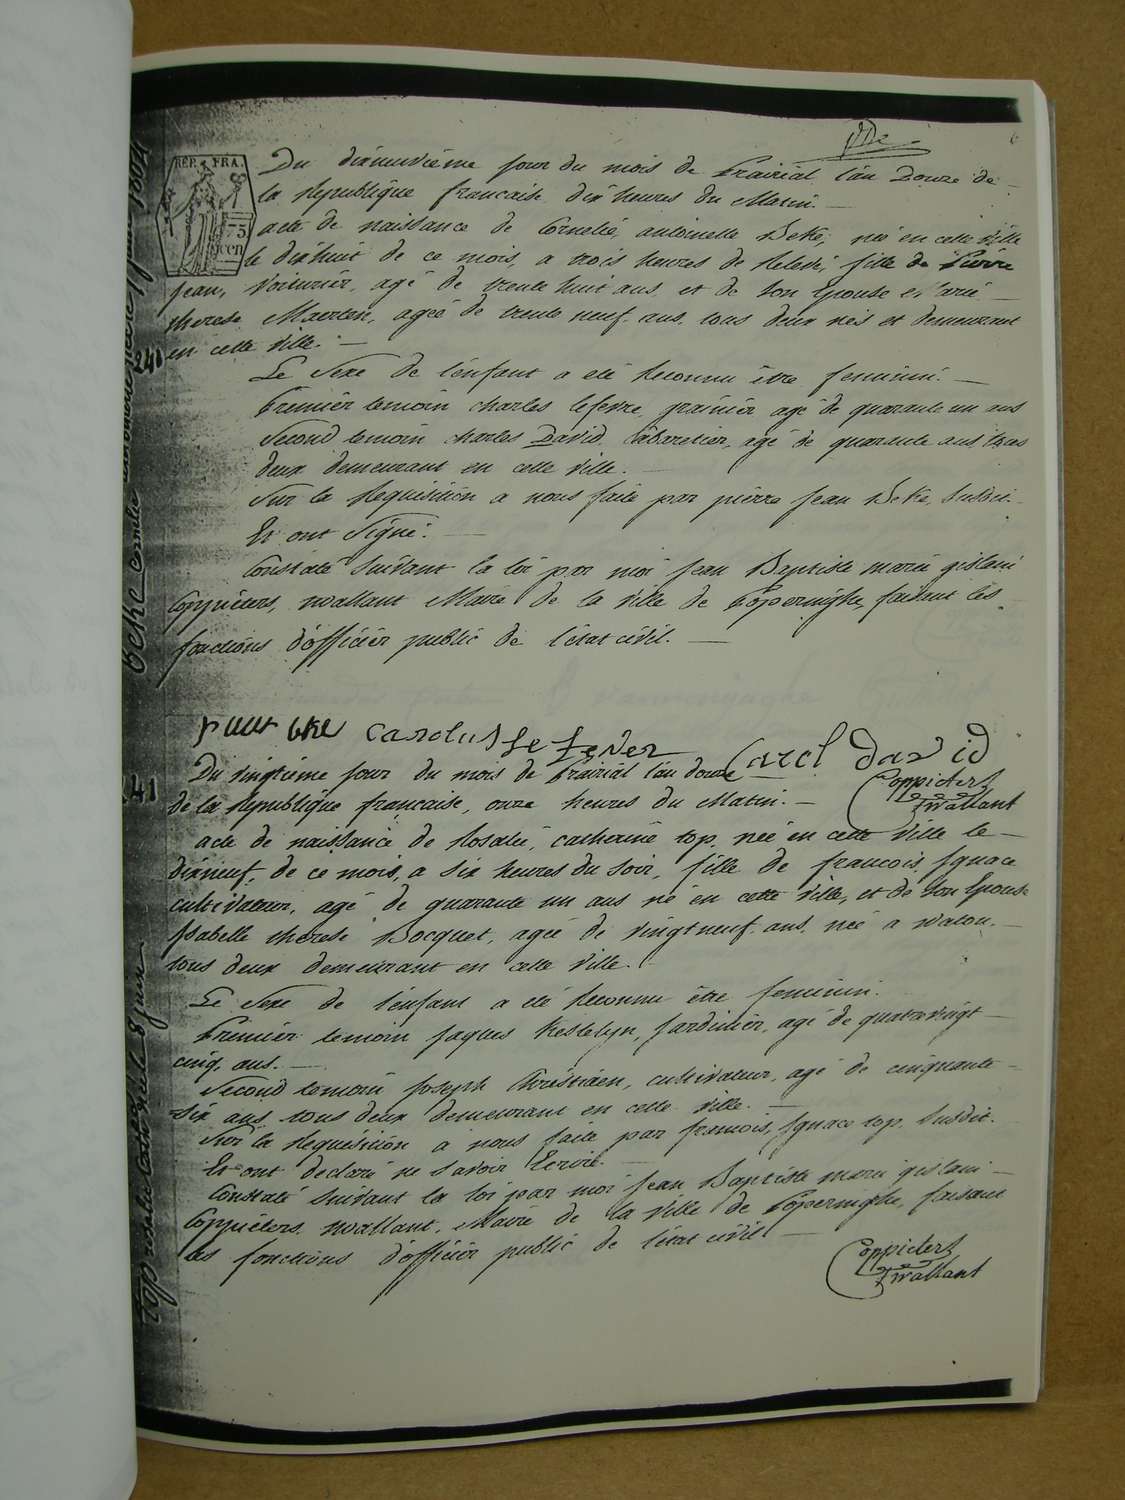 REP. FRA.
75
cen
Du dixneuvième jour du mois de Prairial l'an Douze de
la République française dix heures du Matin. —
acte de naissance de Cornelie, antoinette Beke, née en cette Ville
le dixhuit de ce mois, a trois heures de Relevé, fille de Pierre
Jean, Voiturier, agé de trente huit ans et de Son Epouse Marie —
therese Maerten, agée de trente neuf ans, tous deux nés et demeurant
en cette Ville. —
240
Le Sexe de l'enfant a eté Reconnu être feminin. —
Premier temoin charles lefevre, grainier agé de quarante un ans
Second temoin charles David Cabaretier, agé de quarante ans tous
deux demeurant en cette ville. —
Sur la Requisition a nous faite par pierre Jean Beke, Susdit.
Et ont Signé. —
Constaté Suivant la loi par moi Jean Baptiste marie gislain
Coppieters, wallant Maire de la ville de Poperinghe, faisant les
fonctions d'officier public de l'état civil. —
Beke Cornelie antoinette née le 7 juin 1804
beke carolus le fever Carel david
Coppieters
wallant
241
Du vingtième jour du mois de Prairial l'an douze
de la Republique française, onze heures du Matin. —
acte de naissance de Rosalie, catherine top, née en cette Ville le —
dixneuf, de ce mois, a six heures du soir, fille de francois Ignace
cultivateur, agé de quarante un ans né en cette ville, et de Son Epouse
Isabelle therese Bocquet, agée de vingt neuf ans, née a watou. —
tous deux demeurant en cette Ville. —
Le Sexe de l'enfant a eté Reconnu être feminin.
Premier temoin Jaques Kestelyn, Jardinier, agé de quatrevingt —
cinq, ans. —
Second temoin Joseph Christiaen, cultivateur, agé de cinquante —
six ans tous deux demeurant en cette ville. —
Sur la Requisition a nous faite par francois, Ignace top, Susdit.
Et ont declaré ne Savoir Ecrire. —
Constaté Suivant la loi par moi Jean Baptiste marie gislain —
Coppieters, wallant, Maire de la Ville de Poperinghe, faisant
les fonctions d'officier public de l'état civil —
top rosalie cath née le 8 juin
Coppieters
wallant